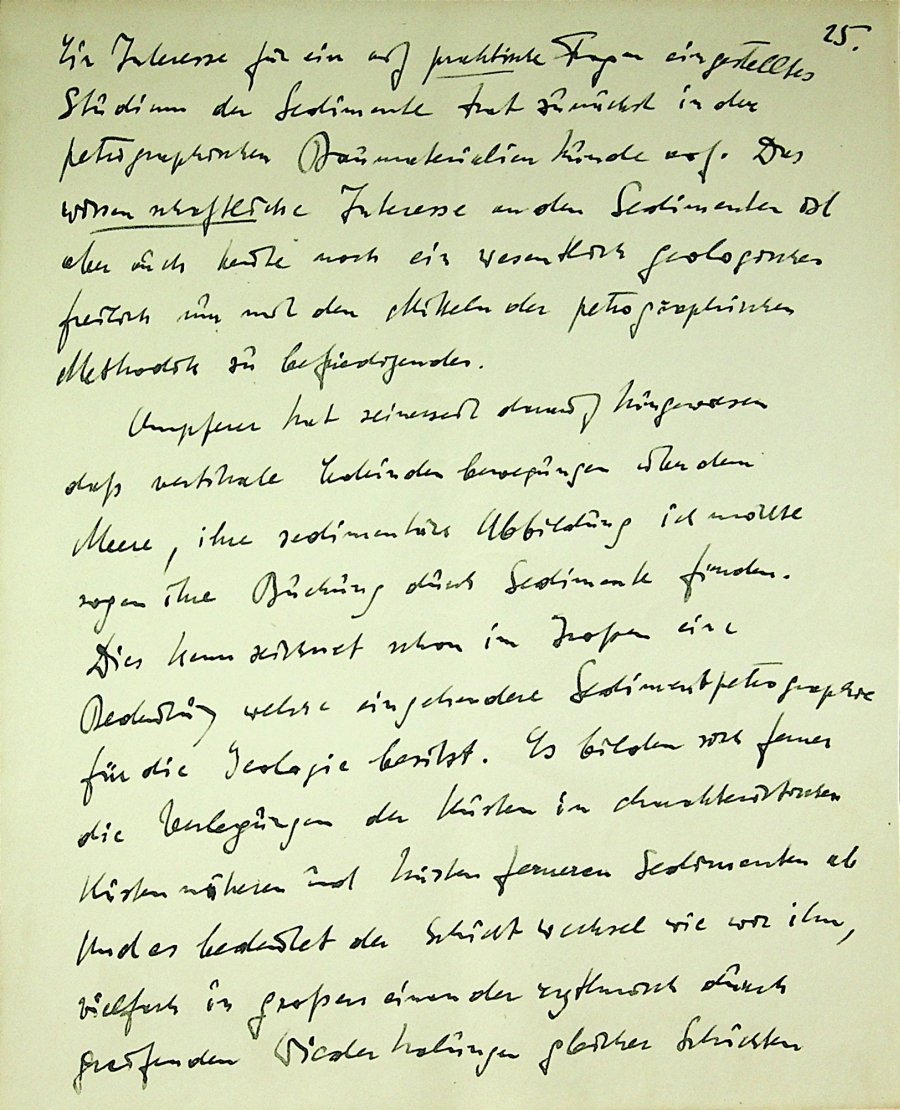 25.
Ein Interesse für ein auf praktische Fragen eingestelltes
Studium der Sedimente trat zunächst in der
petrographischen Baumaterialien Kunde auf. Das
wissenschaftliche Interesse an den Sedimenten ist
aber auch heute noch ein wesentlich geologisches
freilich nur mit den Mitteln der petrographischen
Methodik zu befriedigendes.
Ampferer hat seinerzeit darauf hingewiesen
daß vertikale bewegungen über dem
Meere, ihre sedimentäre Abbildung ich möchte
sagen ihre Buchung durch Sedimente finden.
Dies kennzeichnet schon im Großen eine
Bedeutung welche eingehendere Sedimentpetrographie
für die Geologie besitzt. Es bilden sich ferner
die Verlegungen der Küsten in charakteristischen
Küsten näheren und küsten ferneren Sedimenten ab
Und es bedeutet der Schichtwechsel wie wir ihn,
vielfach in großen einander rythmisch durch
greifenden Wiederholungen gleicher Schichten